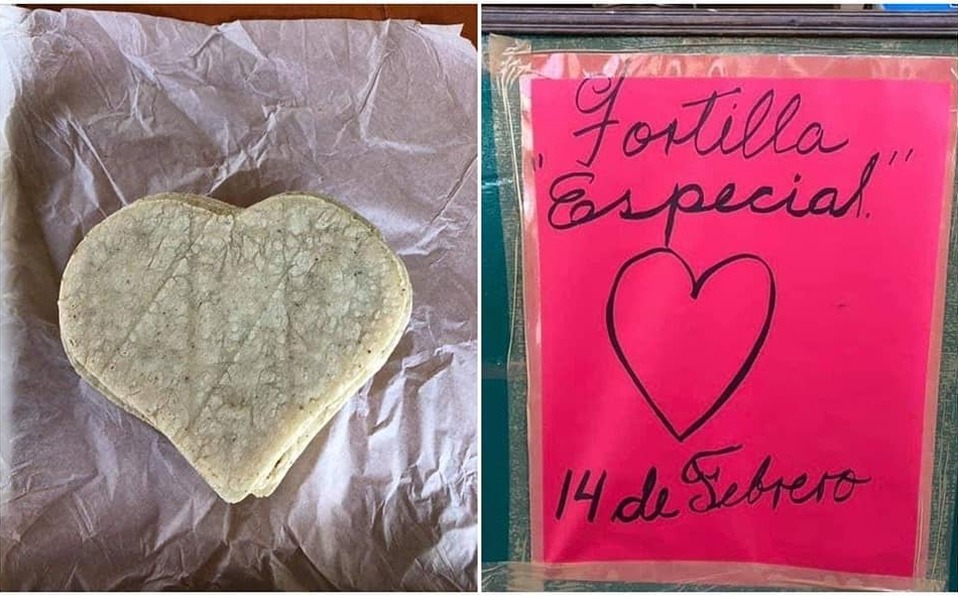 Tortilla
"Especial."
14 de Febrero